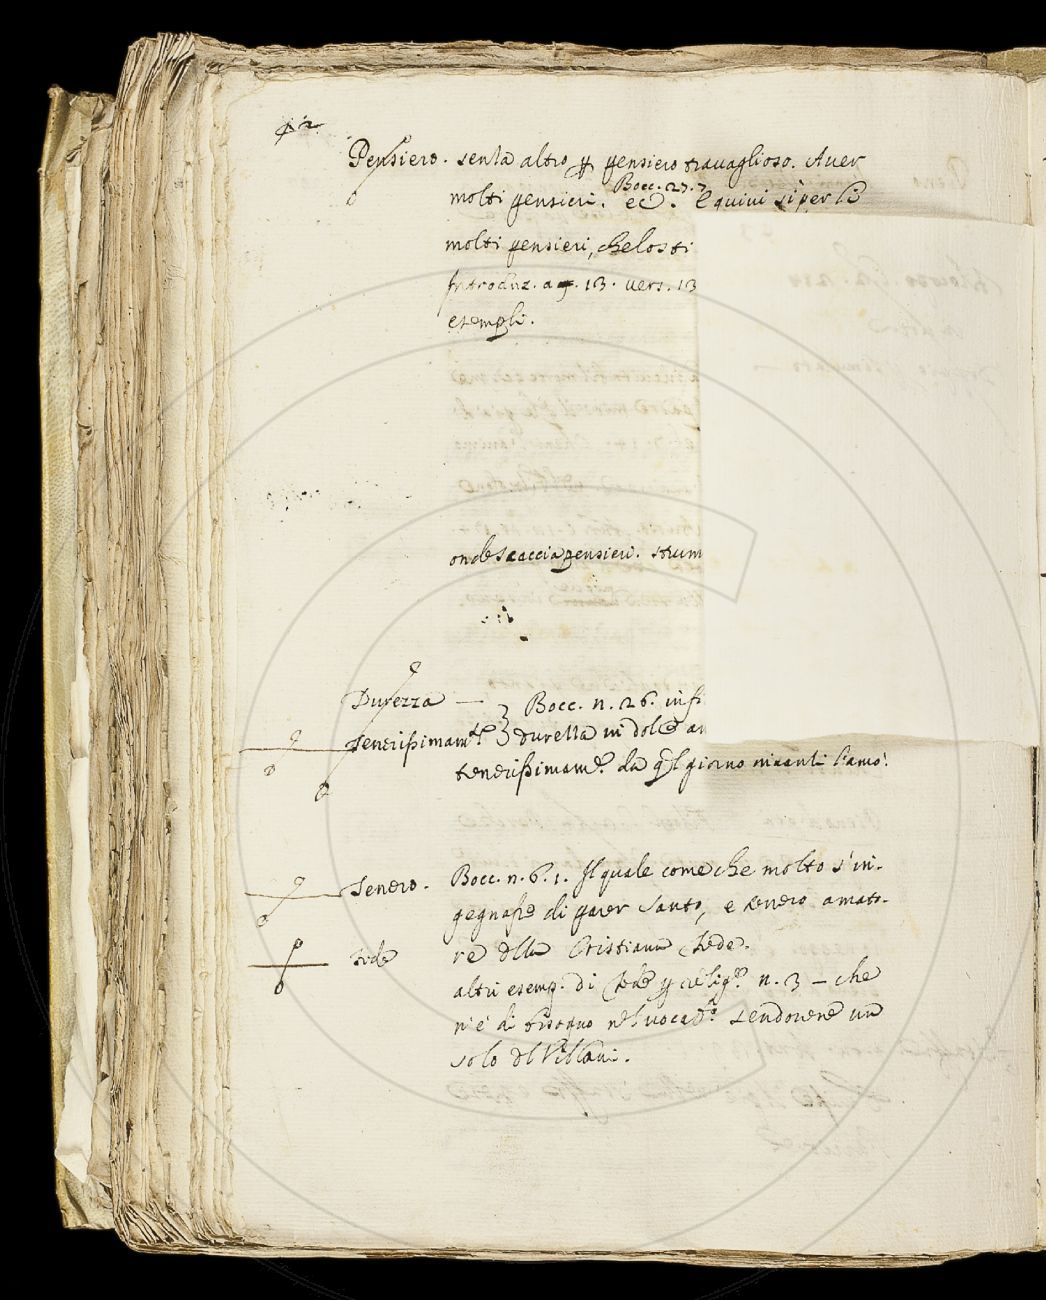 Pensiero. senza altro p pensiero travaglioso. Aver
molti pensieri. Bocc. 27. 7
ec. E quivi sì per li
molti pensieri, che
Introduz. a 13. vers. 13
esempli.
onde scacciapensieri. strum
Durezza — Bocc. n. 26. infi
Tenerissimamte durezza in dolce am
tenerissimamte. da ql giorno innanzi l'amò.
Tenero. Bocc. n. 6. 1. Il quale come che molto s'in-
gegnasse di parer santo, e tenero amato-
re della Cristiana fede.
fede
altri esemp. di fede p n. 3 — che
n'è di bisogno nel vocabo. essendovene un
solo del Villani.